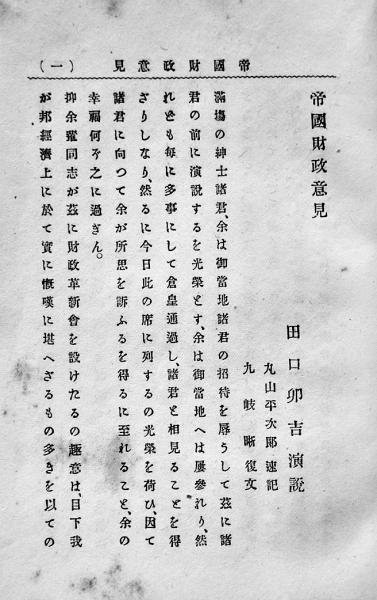 帝國財政意見 (一)
帝國財政意見
田口卯吉演説
丸山平次郎速記
九岐晰復文
滿塲の紳士諸君、余は御當地諸君の招待を辱うして茲に諸
君の前に演説するを光榮とす、余は御當地へは屢參れり、然
れども毎に多事にして倉皇通過し、諸君と相見ることを得
ざりしなり、然るに今日此の席に列するの光榮を荷ひ、因て
諸君に向つて余が所思を訴ふるを得るに至れること、余の
幸福何ぞ之に過ぎん。
抑余輩同志が茲に財政革新會を設けたるの趣意は、目下我
が邦經濟上に於て實に慨嘆に堪へざるもの多きを以ての